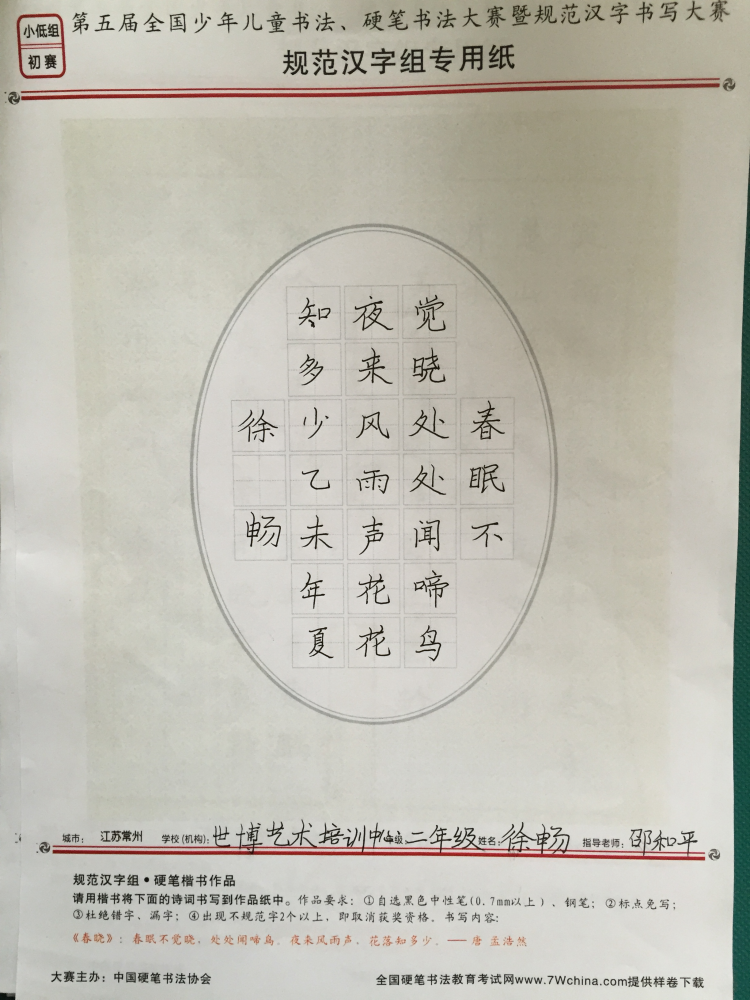 小低组
初赛
第五届全国少年儿童书法、硬笔书法大赛暨规范汉字书写大赛
规范汉字组专用纸
春眠不
觉晓处处闻啼鸟
夜来风雨声花花
知多少乙未年夏
徐畅
城市: 江苏常州 学校(机构): 世博艺术培训中心 年级: 二年级 姓名: 徐畅 指导老师: 邵和平
规范汉字组•硬笔楷书作品
请用楷书将下面的诗词书写到作品纸中。作品要求：①自选黑色中性笔(0.7mm以上)、钢笔；②标点免写；
③杜绝错字、漏字；④出现不规范字2个以上，即取消获奖资格。书写内容：
《春晓》：春眠不觉晓，处处闻啼鸟。夜来风雨声，花落知多少。—— 唐 孟浩然
大赛主办：中国硬笔书法协会 全国硬笔书法教育考试网www.7Wchina.com提供样卷下载